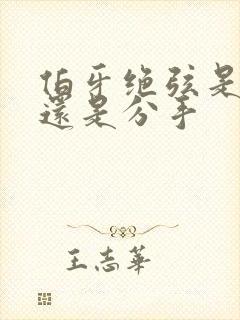 伯牙绝弦是
還是分手
王志華